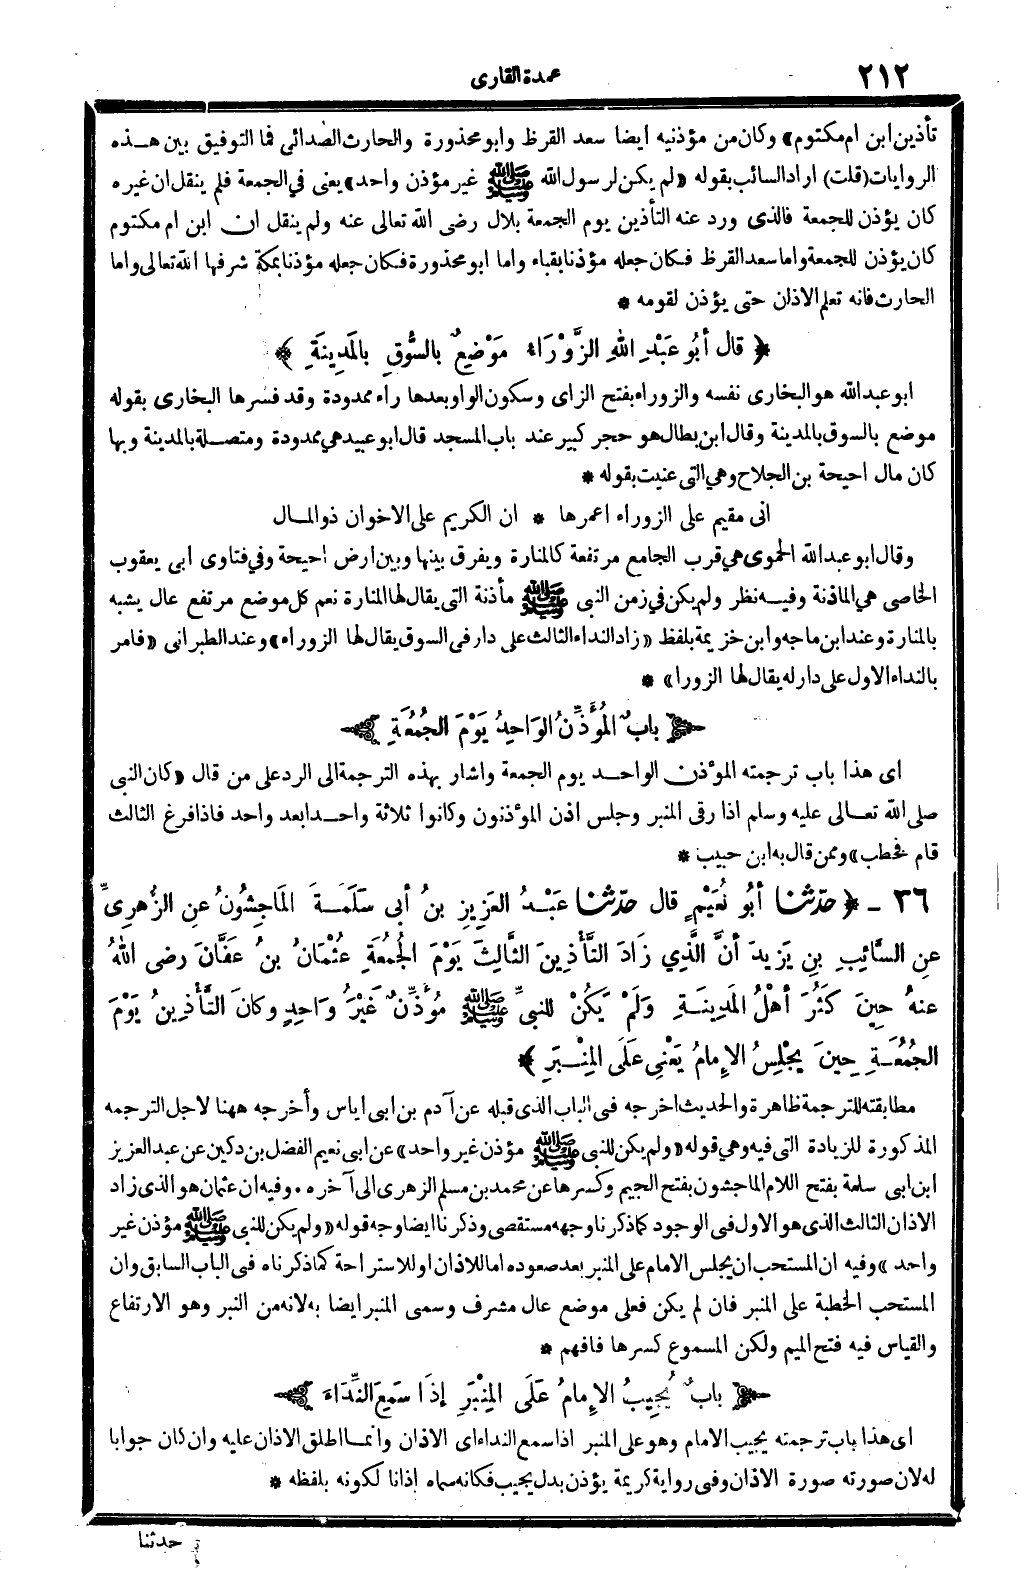 ٢١٢
عمدة القارى
تأذين ابن ام مكتوم» وكان من مؤذنيه ايضا سعد القرظ وابو محذورة والحارث الصدائى فما التوفيق بين هـذه
الروايات (قلت) اراد السائب بقوله «لم يكن لرسول الله ﷺ غير مؤذن واحد» يعنى في الجمعة فلم ينقل ان غيره
كان يؤذن للجمعة فالذى ورد عنه التأذين يوم الجمعة بلال رضى الله تعالى عنه ولم ينقل ان ابن ام مكتوم
كان يؤذن للجمعة واما سعد القرظ فكان جعله مؤذنا بقباء واما ابو محذورة فكان جعله مؤذنا بمكة شرفها الله تعالى واما
الحارث فانه تعلم الاذان حتى يؤذن لقومه *
﴿ قال أبُو عَبْدِ اللهِ الزَّوْرَاءُ مَوْضِعٌ بالسُّوقِ بالمَدِينَةِ ﴾
ابو عبد الله هو البخارى نفسه والزوراء بفتح الزاى وسكون الواو بعدها راء ممدودة وقد فسرها البخارى بقوله
موضع بالسوق بالمدينة وقال ابن بطال هو حجر كبير عند باب المسجد قال ابو عبيد هي ممدودة ومتصلة بالمدينة وبها
كان مال احيحة بن الجلاح وهي التى عنيت بقوله *
انى مقيم على الزوراء اعمرها * ان الكريم على الاخوان ذو المال
وقال ابو عبد الله الحموى هي قرب الجامع مرتفعة كالمنارة ويفرق بينها وبين ارض احيحة وفي فتاوى ابى يعقوب
الخاصى هي الماذنة وفيه نظر ولم يكن في زمن النبى ﷺ مأذنة التى يقال لها المنارة نعم كل موضع مرتفع عال يشبه
بالمنارة وعند ابن ماجه وابن خزيمة بلفظ «زاد النداء الثالث على دار فى السوق يقال لها الزوراء» وعند الطبرانى «فامر
بالنداء الاول على دار له يقال لها الزورا» *
﴿ بابُ المُؤَذِّنُ الوَاحِدُ يَوْمَ الجُمُعَةِ ﴾
اى هذا باب ترجمته المؤذن الواحد يوم الجمعة واشار بهذه الترجمة الى الرد على من قال «كان النبى
صلى الله تعالى عليه وسلم اذا رقى المنبر وجلس اذن المؤذنون وكانوا ثلاثة واحدا بعد واحد فاذا فرغ الثالث
قام فخطب» وممن قال به ابن حبيب *
٣٦ ـ ﴿ حدّثنا أبُو نُعَيْمٍ قال حدّثنا عَبْدُ العَزِيزِ بنُ أبى سَلَمَةَ المَاجِشُونُ عنِ الزُّهرِىِّ
عنِ السَّائِبِ بنِ يَزِيدَ أنَّ الَّذِي زَادَ التَّأْذِينَ الثَّالِثَ يَوْمَ الجُمعَةِ عُثْمَانُ بنُ عَفَّانَ رضى اللهُ
عنهُ حِينَ كَثُرَ أهْلُ المَدِينَةِ وَلَمْ يَكُنْ للنبىِّ ﷺ مُؤَذِّنٌ غَيْرُ وَاحِدٍ وكانَ التَّأْذِينُ يَوْمَ
الجُمُعَةِ حِينَ يَجْلِسُ الإِمامُ يَعْنِى عَلَى المِنْبَرِ ﴾ *
مطابقته للترجمة ظاهرة والحديث اخرجه فى الباب الذى قبله عن آدم بن ابى اياس وأخرجه ههنا لاجل الترجمه
المذكورة للزيادة التى فيه وهي قوله «ولم يكن للنبى ﷺ مؤذن غير واحد» عن ابى نعيم الفضل بن دكين عن عبد العزيز
ابن ابى سلمة بفتح اللام الماجشون بفتح الجيم وكسرها عن محمد بن مسلم الزهرى الى آخره. وفيه ان عثمان هو الذى زاد
الاذان الثالث الذى هو الاول فى الوجود كما ذكرنا وجهه مستقصى وذكرنا ايضا وجه قوله «ولم يكن للنبى ﷺ مؤذن غير
واحد» وفيه ان المستحب ان يجلس الامام على المنبر بعد صعوده اما للاذان او للاستراحة كما ذكرناه فى الباب السابق وان
المستحب الخطبة على المنبر فان لم يكن فعلى موضع عال مشرف وسمى المنبر ايضا به لانه من النبر وهو الارتفاع
والقياس فيه فتح الميم ولكن المسموع كسرها فافهم *
﴿ بابٌ يُجِيبُ الإِمامُ عَلَى المِنْبَرِ إذَا سَمِعَ النِّدَاءَ ﴾
اى هذا باب ترجمته يجيب الامام وهو على المنبر اذا سمع النداء اى الاذان وانما اطلق الاذان عليه وان كان جوابا
له لان صورته صورة الاذان وفى رواية كريمة يؤذن بدل يجيب فكانه سماه اذانا لكونه بلفظه *
حدثنا